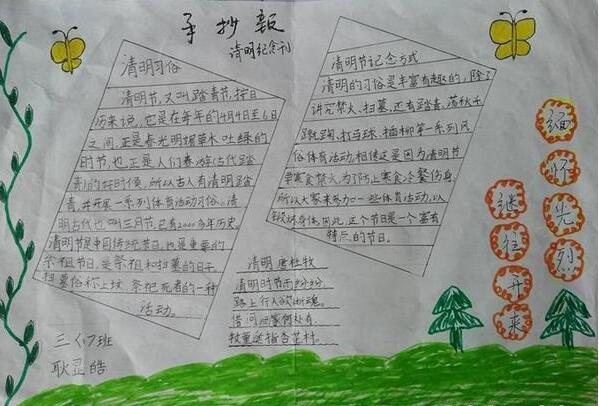 手抄报
清明纪念刊
清明习俗
清明节,又叫踏青节,按日
历来说,它是在每年的4月4日至6日
之间,正是春光明媚草木吐绿的
时节,也正是人们春游(古代踏
青)的好时候,所以古人有清明踏
青,并开展一系列体育活动习俗。清
明古代也叫三月节,已有2000多年历史。
清明节是中国传统节日,也是重要的
祭祖节日,是祭祖和扫墓的日子。
扫墓俗称上坟,祭祀死者的一种
活动。
清明节记念方式
清明的习俗是丰富有趣的,除了
讲究禁火、扫墓,还有踏青、荡秋千
蹴踘、打马球、插柳第一系列风
俗体育活动,相传这是因为清明节
要寒食禁火,为了防止寒食冷餐伤身,
所以大家来参加一些体育活动,以
锻炼身体。因此,这个节日是一个富有
特点的节日。
清明 唐杜牧
清明时节雨纷纷,
路上行人欲断魂。
借问酒家何处有,
牧童遥指杏花村。
缅怀先烈
继往开来
三(7)班
耿显皓